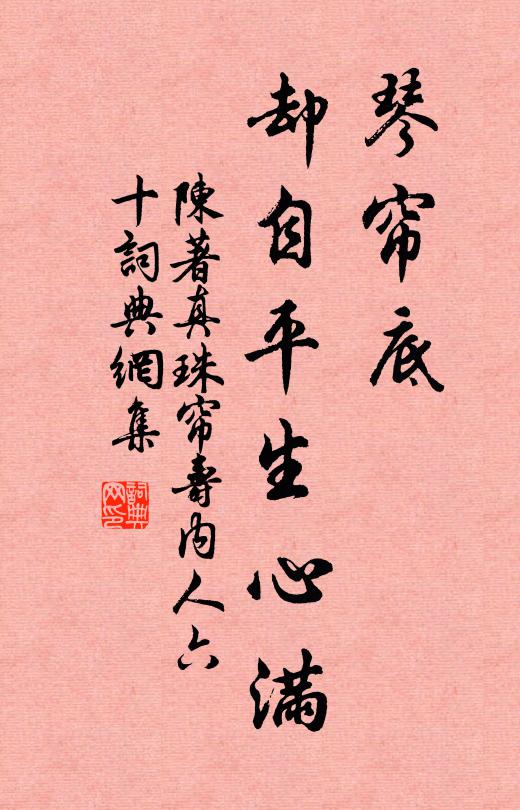 琴帘底
却自平生心滿
陳著真珠帘壽内人六
十詞典網集
詞典
网印